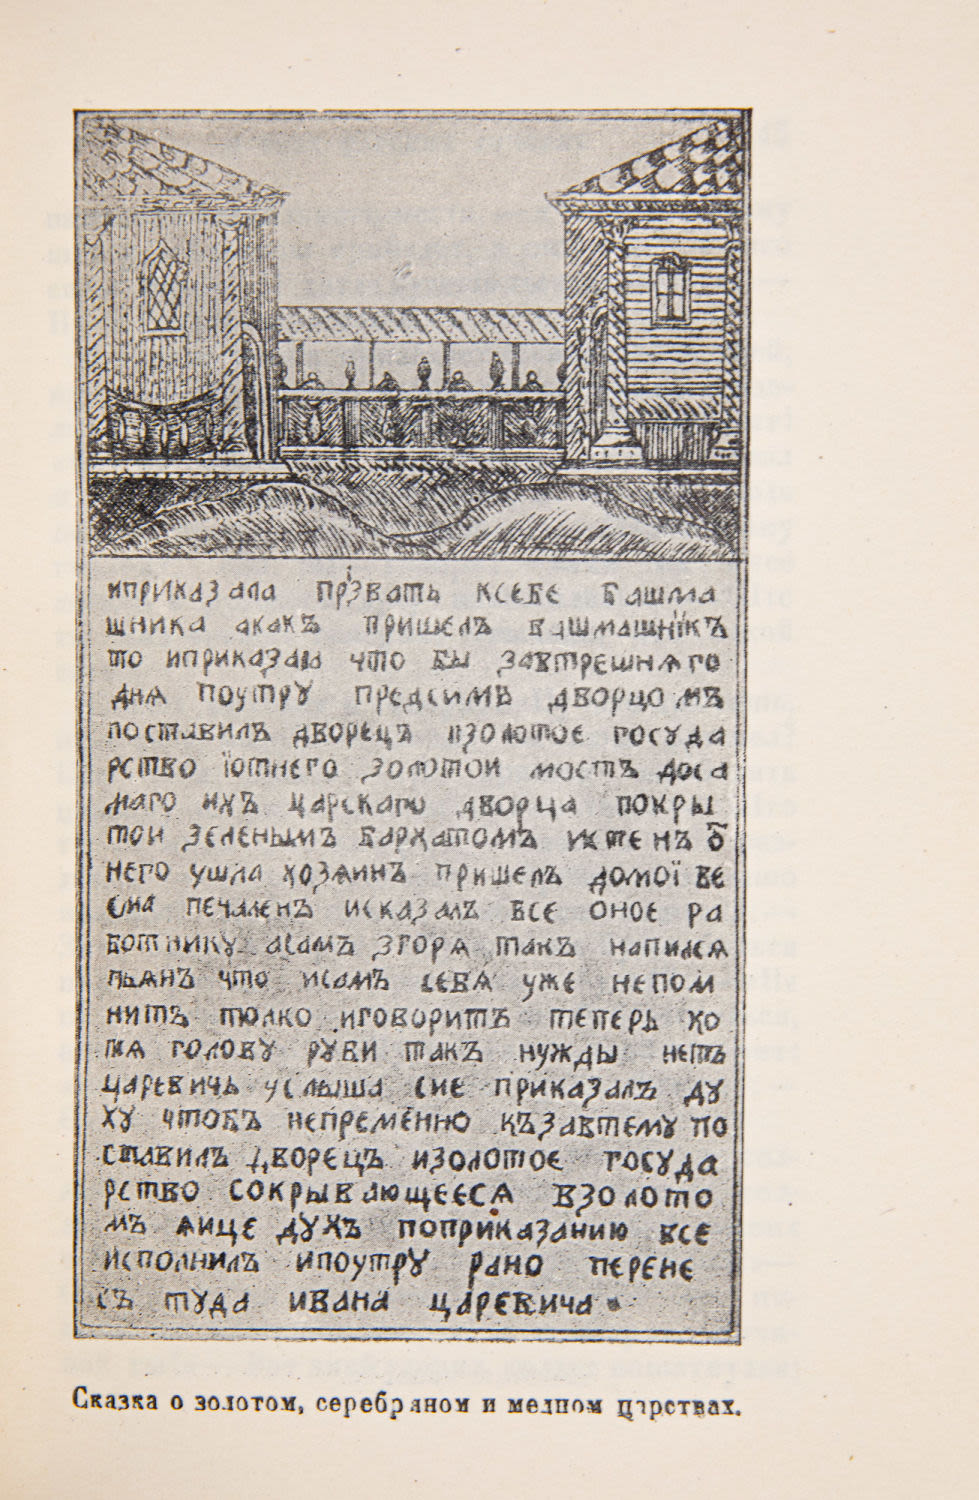 иприказала прїзвать ксебе башма
щника акакъ пришелъ башмашнїкъ
то иприказала что бы завтрешняго
дня поутру предсимъ дворцомъ
поставилъ дворецъ изолотое госуда
рство їотнего золотой мостъ доса
маго ихъ царскаго дворца покры
той зеленымъ бархатомъ
него ушла хозяинъ пришелъ домої ве
сма печаленъ исказалъ все оное ра
ботнику асамъ згоря такъ напился
пьянъ что исамъ себя уже непом
нитъ толко иговоритъ теперь хо
тя голову руби такъ нужды нетъ
царевичь услыша сие приказалъ ду
ху чтобъ непременно къзавтему по
ставилъ дворецъ изолотое госуда
рство сокрывающееся взолото
мъ яице духъ поприказанию все
исполнилъ ипоутру рано перене
съ туда ивана царевича
Сказка о золотом, серебряном и медном царствах.